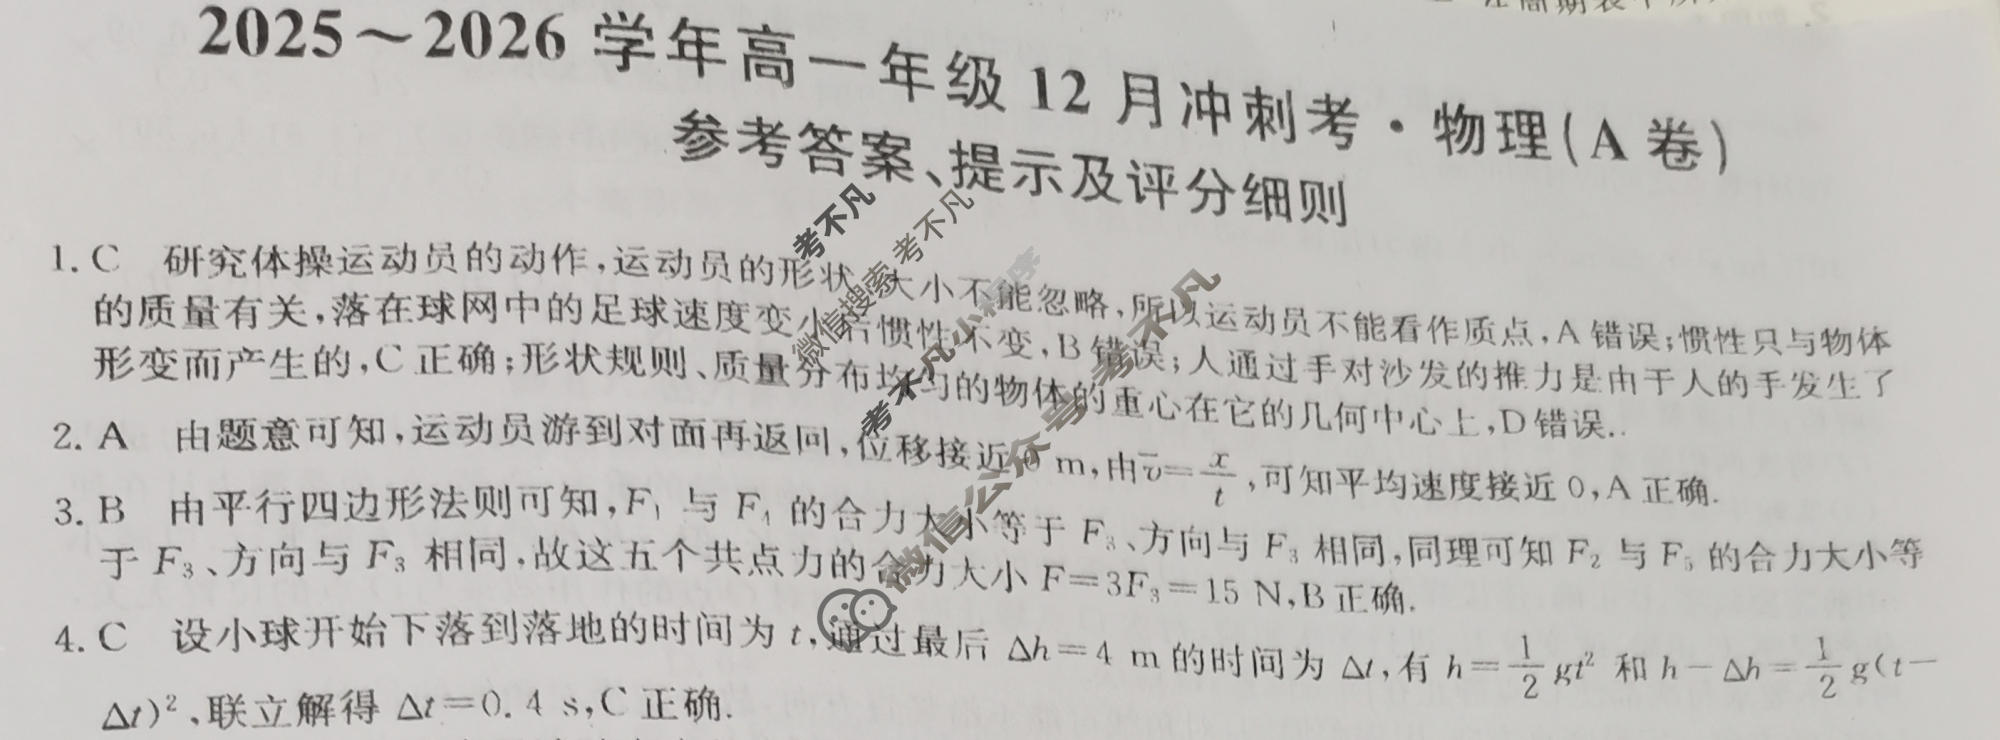 2025～2026 学年高一年级 12 月冲刺考·物理(A 卷)
参考答案、提示及评分细则
1. C 研究体操运动员的动作,运动员的形状、大小不能忽略,所以运动员不能看作质点,A 错误;惯性只与物体
的质量有关,落在球网中的足球速度变小后惯性不变,B 错误;人通过手对沙发的推力是由于人的手发生了
形变而产生的,C 正确;形状规则、质量分布均匀的物体的重心在它的几何中心上,D 错误.
2. A 由题意可知,运动员游到对面再返回,位移接近 0 m,由 v̄=x/t,可知平均速度接近 0,A 正确.
3. B 由平行四边形法则可知,F₁ 与 F₄ 的合力大小等于 F₃、方向与 F₃ 相同,同理可知 F₂ 与 F₅ 的合力大小等
于 F₃、方向与 F₃ 相同,故这五个共点力的合力大小 F=3F₃=15 N,B 正确.
4. C 设小球开始下落到落地的时间为 t,通过最后 Δh=4 m 的时间为 Δt,有 h=1/2 gt² 和 h-Δh=1/2 g(t-
Δt)²,联立解得 Δt=0.4 s,C 正确.
考不凡
微信搜索 考不凡
考不凡小程序
微信公众号 考不凡